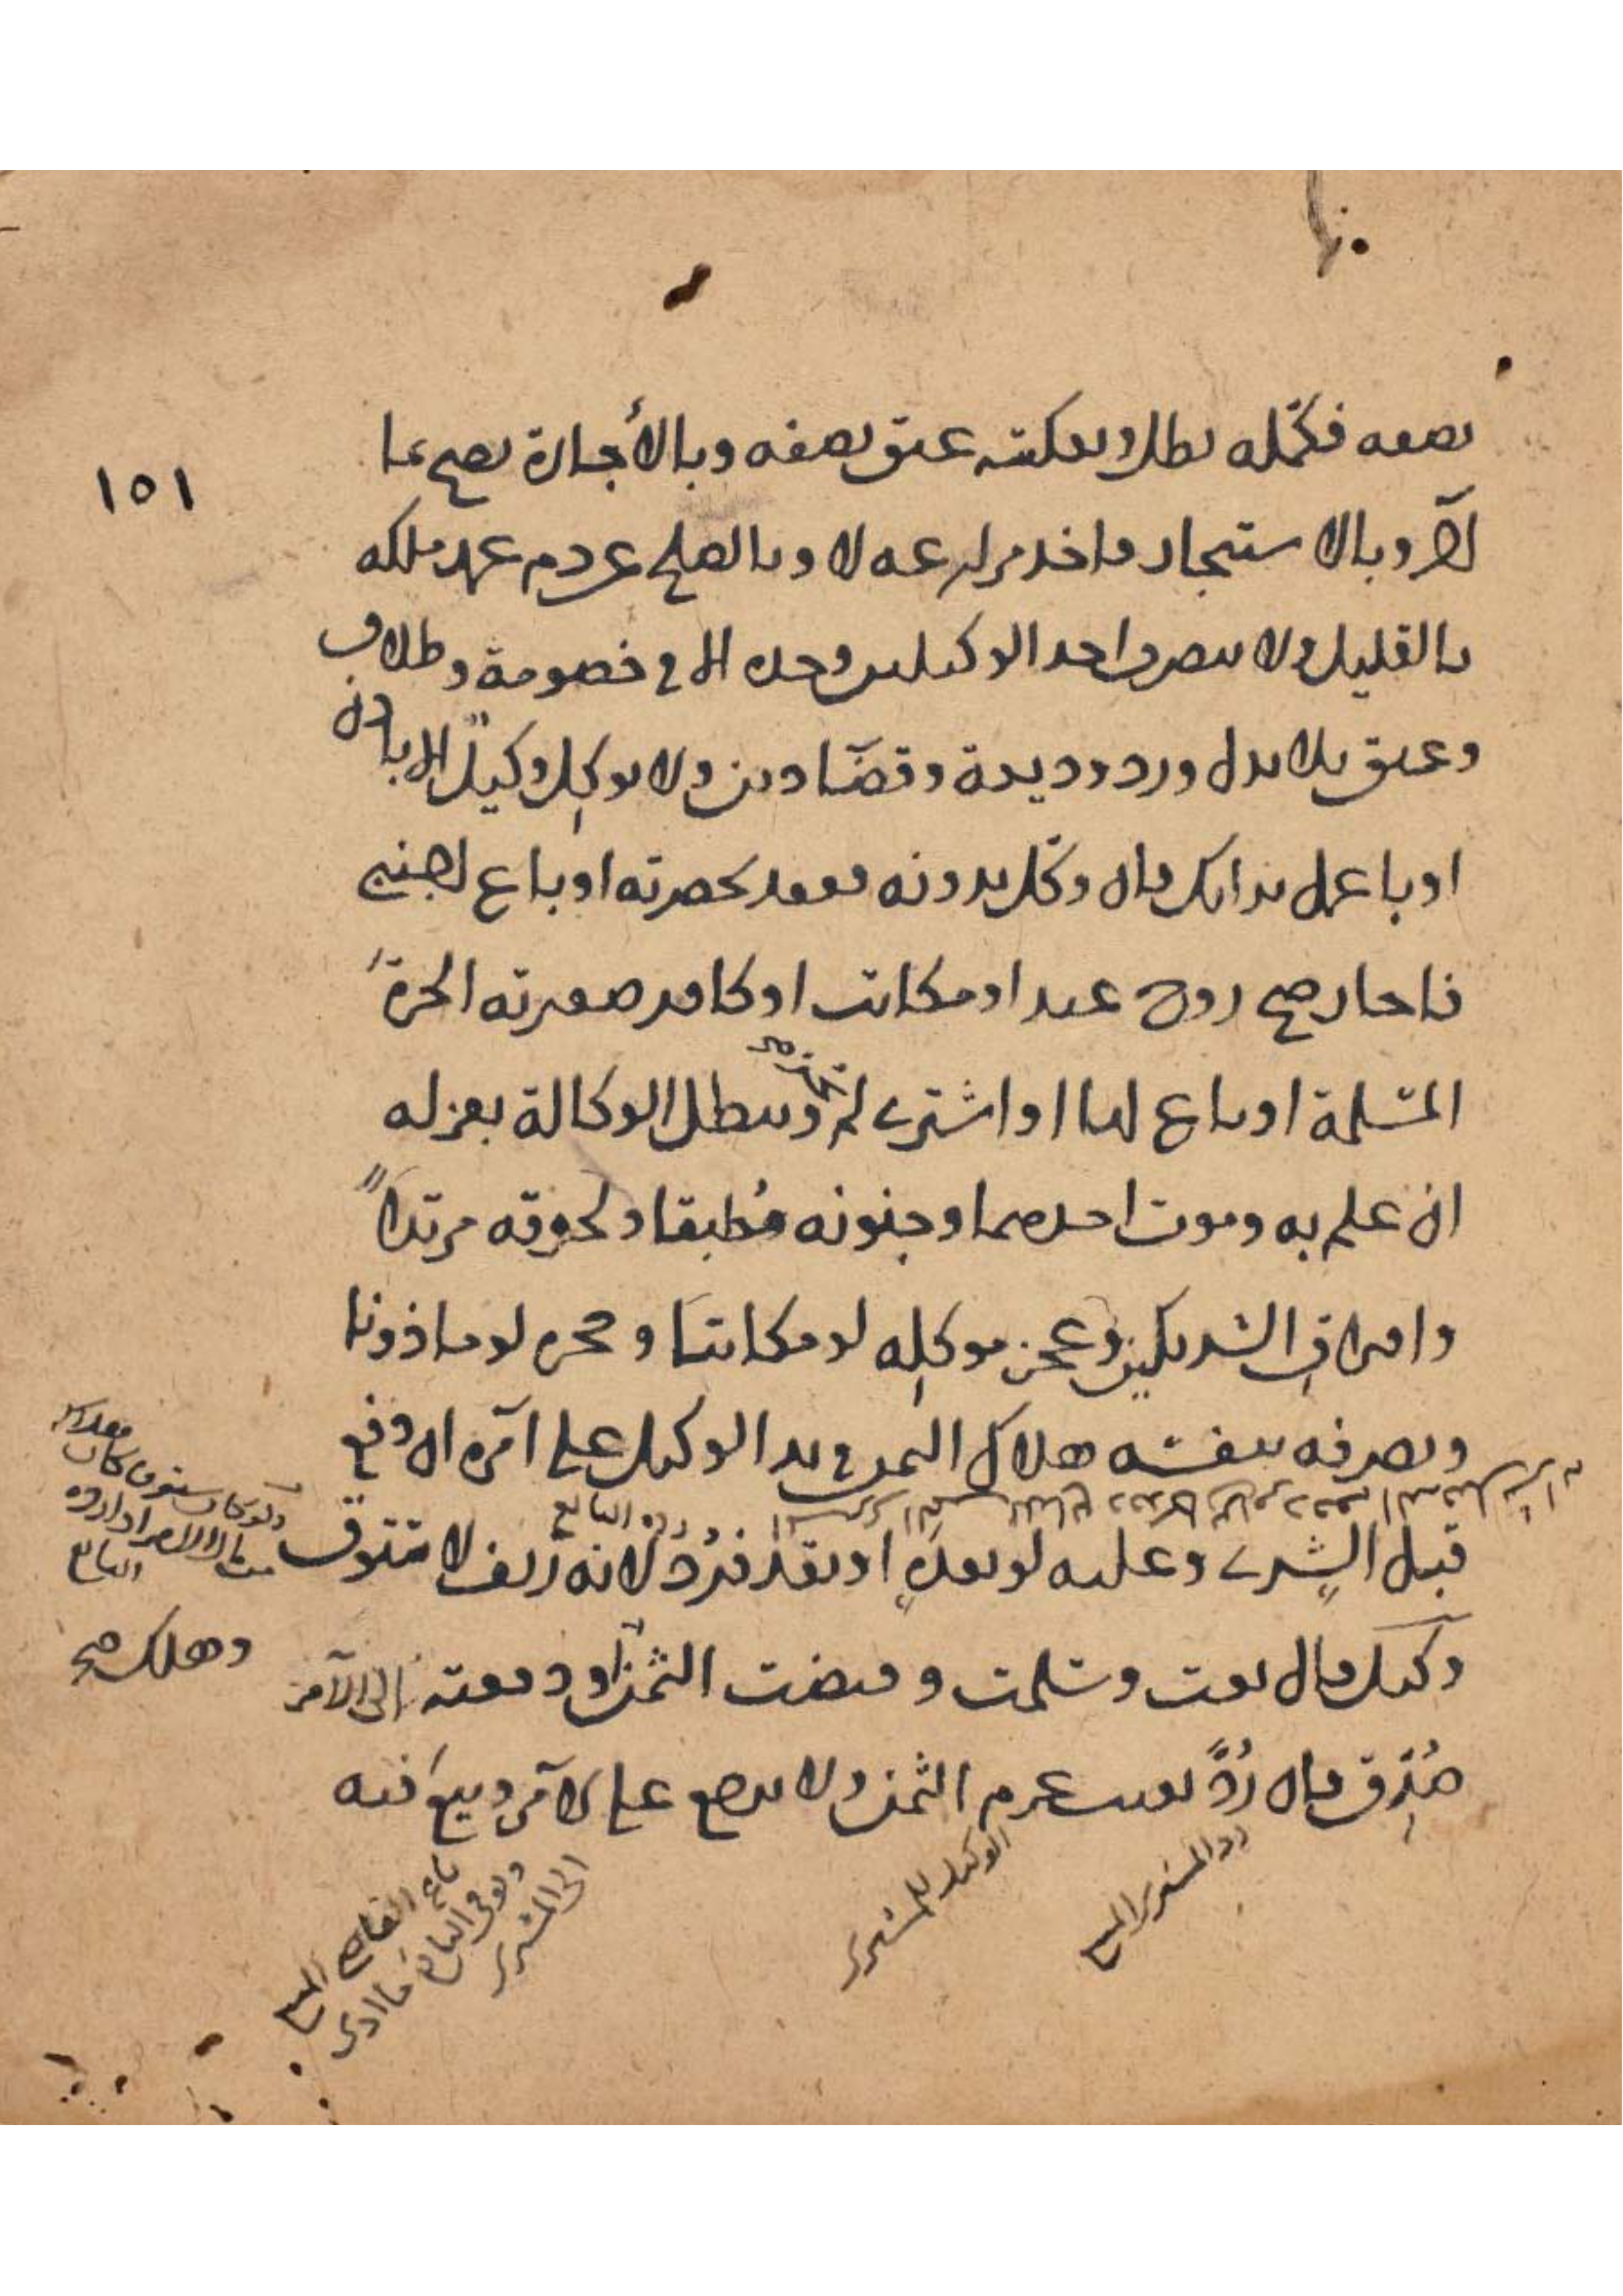 نصفه فكمله بطل وبعكسه عتق نصفه وبالأجارة يصح بما
آجر وبالاستيجار فاخذ مزارعه لا وبالصلح عدم عهد ملكه
بالقليل ولا يتصرف احد الوكيلين وحده الا في خصومة وطلاق
وعتق بلا بدل ورد وديعة وقضاء دين ولا يوكل وكيل الا باذن
او باعمل برايك فان وكل بدونه فعقد بحضرته او باع اجنبي
فاجاز صح زوج عبد او مكاتب او كافر صغيرته الحرة
المسلمة او باع لها او اشترى لم يجز وتبطل الوكالة بعزله
ان علم به وموت احدهما وجنونه مُطبقا ولحوقه مرتدا
وافتراق الشريكين وعجز موكله لو مكاتبا وحجره لو ماذونا
وتصرفه بنفسه هلاك الثمن في يد الوكيل على آمره ان دفع
رده البايع
قبل الشرى وعليه لو بعده او نقد فرُدَّ لانه زيف لا ستوق
وكيل قال بعت وسلمت وقبضت الثمن او دفعته الى الآمر
وهلك صح
صُدِّق فان رُدَّ بعيب غرم الثمن ولا يرجع على الآمر وبيع فيه
رد المشترى المبيع
الوكيل للمشترى
باع القاضى المبيع
ويوفى البايع ما ادى
الى المشترى
١٥١